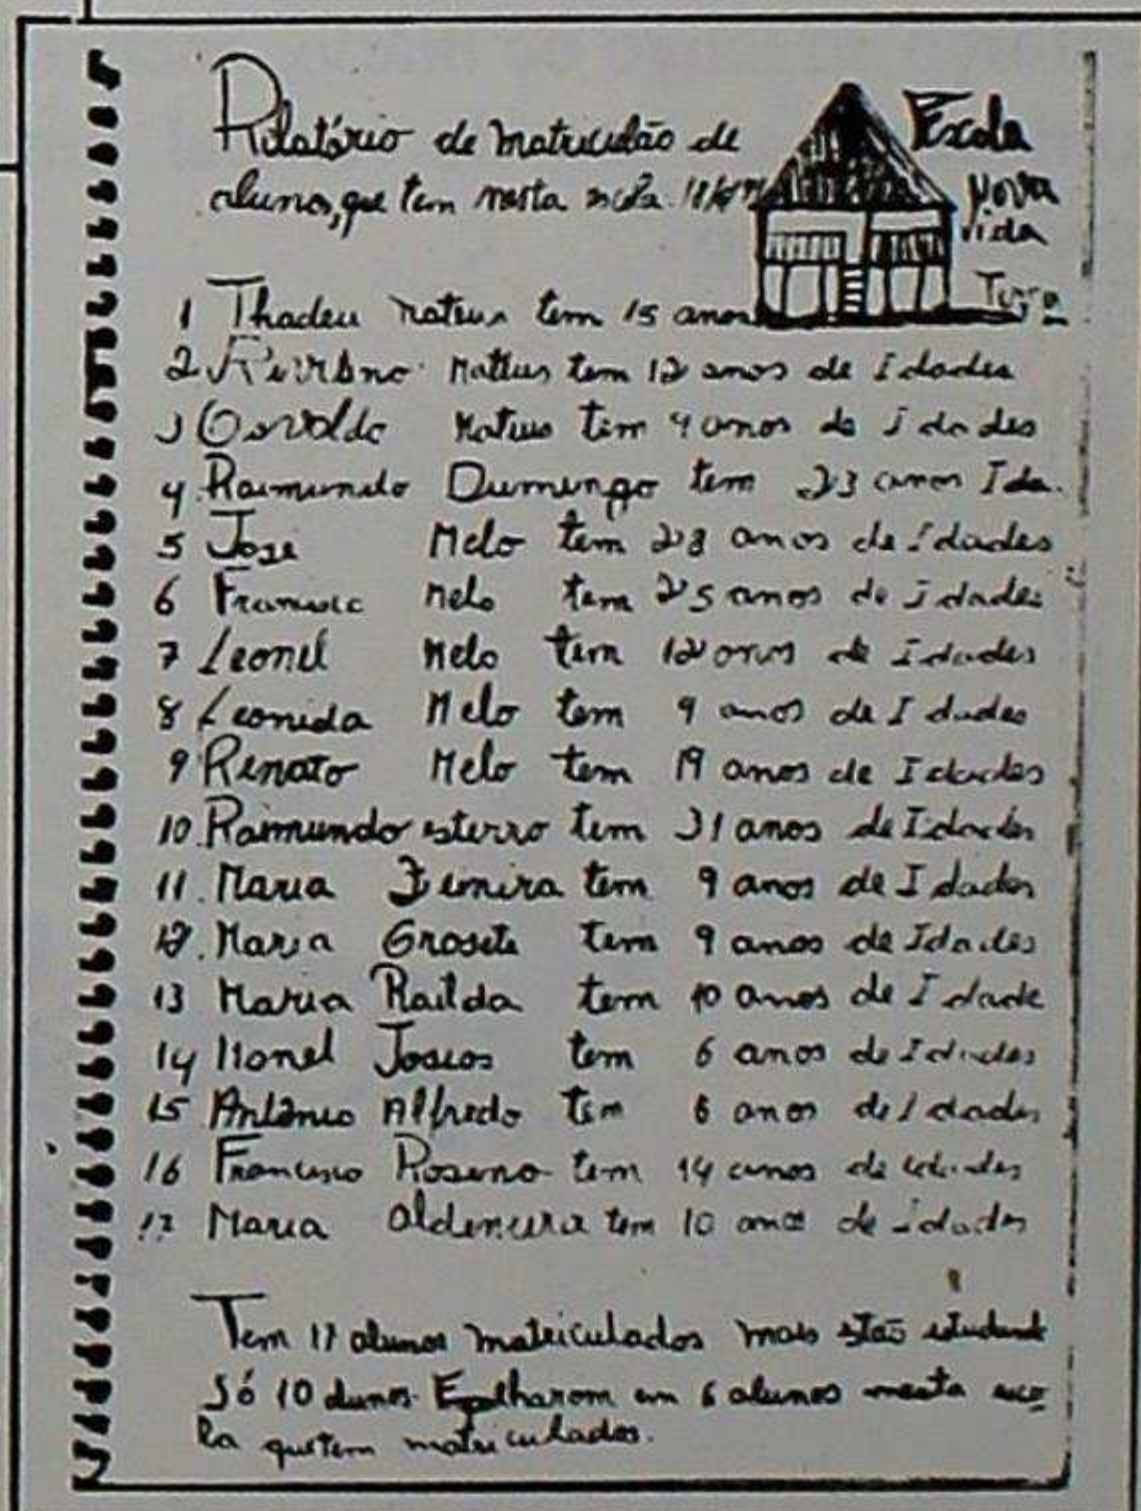 Rilatório de matriculão de
alunos, que tem nesta escola
Escola
Nova
Vida
Terra
1 Thadeu Mateus tem 15 anos
2 Mateus tem 12 anos de Idades
3 Osvaldo Mateus tem 9 anos de idades
4. Raimundo Dumingo tem 23 anos Ida.
5 José Melo tem 28 anos de Idades
6 Francisco Melo tem 25 anos de idades
7 Leonel Melo tem 12 anos de Idades
8 Leonida Melo tem 9 anos de Idades
9 Renato Melo tem 19 anos de Idades
10. Raimundo tem 31 anos de Idades
11. Maria tem 9 anos de Idades
12. Maria Grosete tem 9 anos de Idades
13 Maria Railda tem 10 anos de Idade
14 tem 6 anos de Idades
15 Antônio Alfredo tem 6 anos de Idades
16 Francisco Roseno tem 14 anos de idades
17 Maria Aldeneira tem 10 anos de idades
Tem 17 alunos matriculados mais estão estudando
Só 10 alunos. em 6 alunos nesta esco
la que tem matriculados.